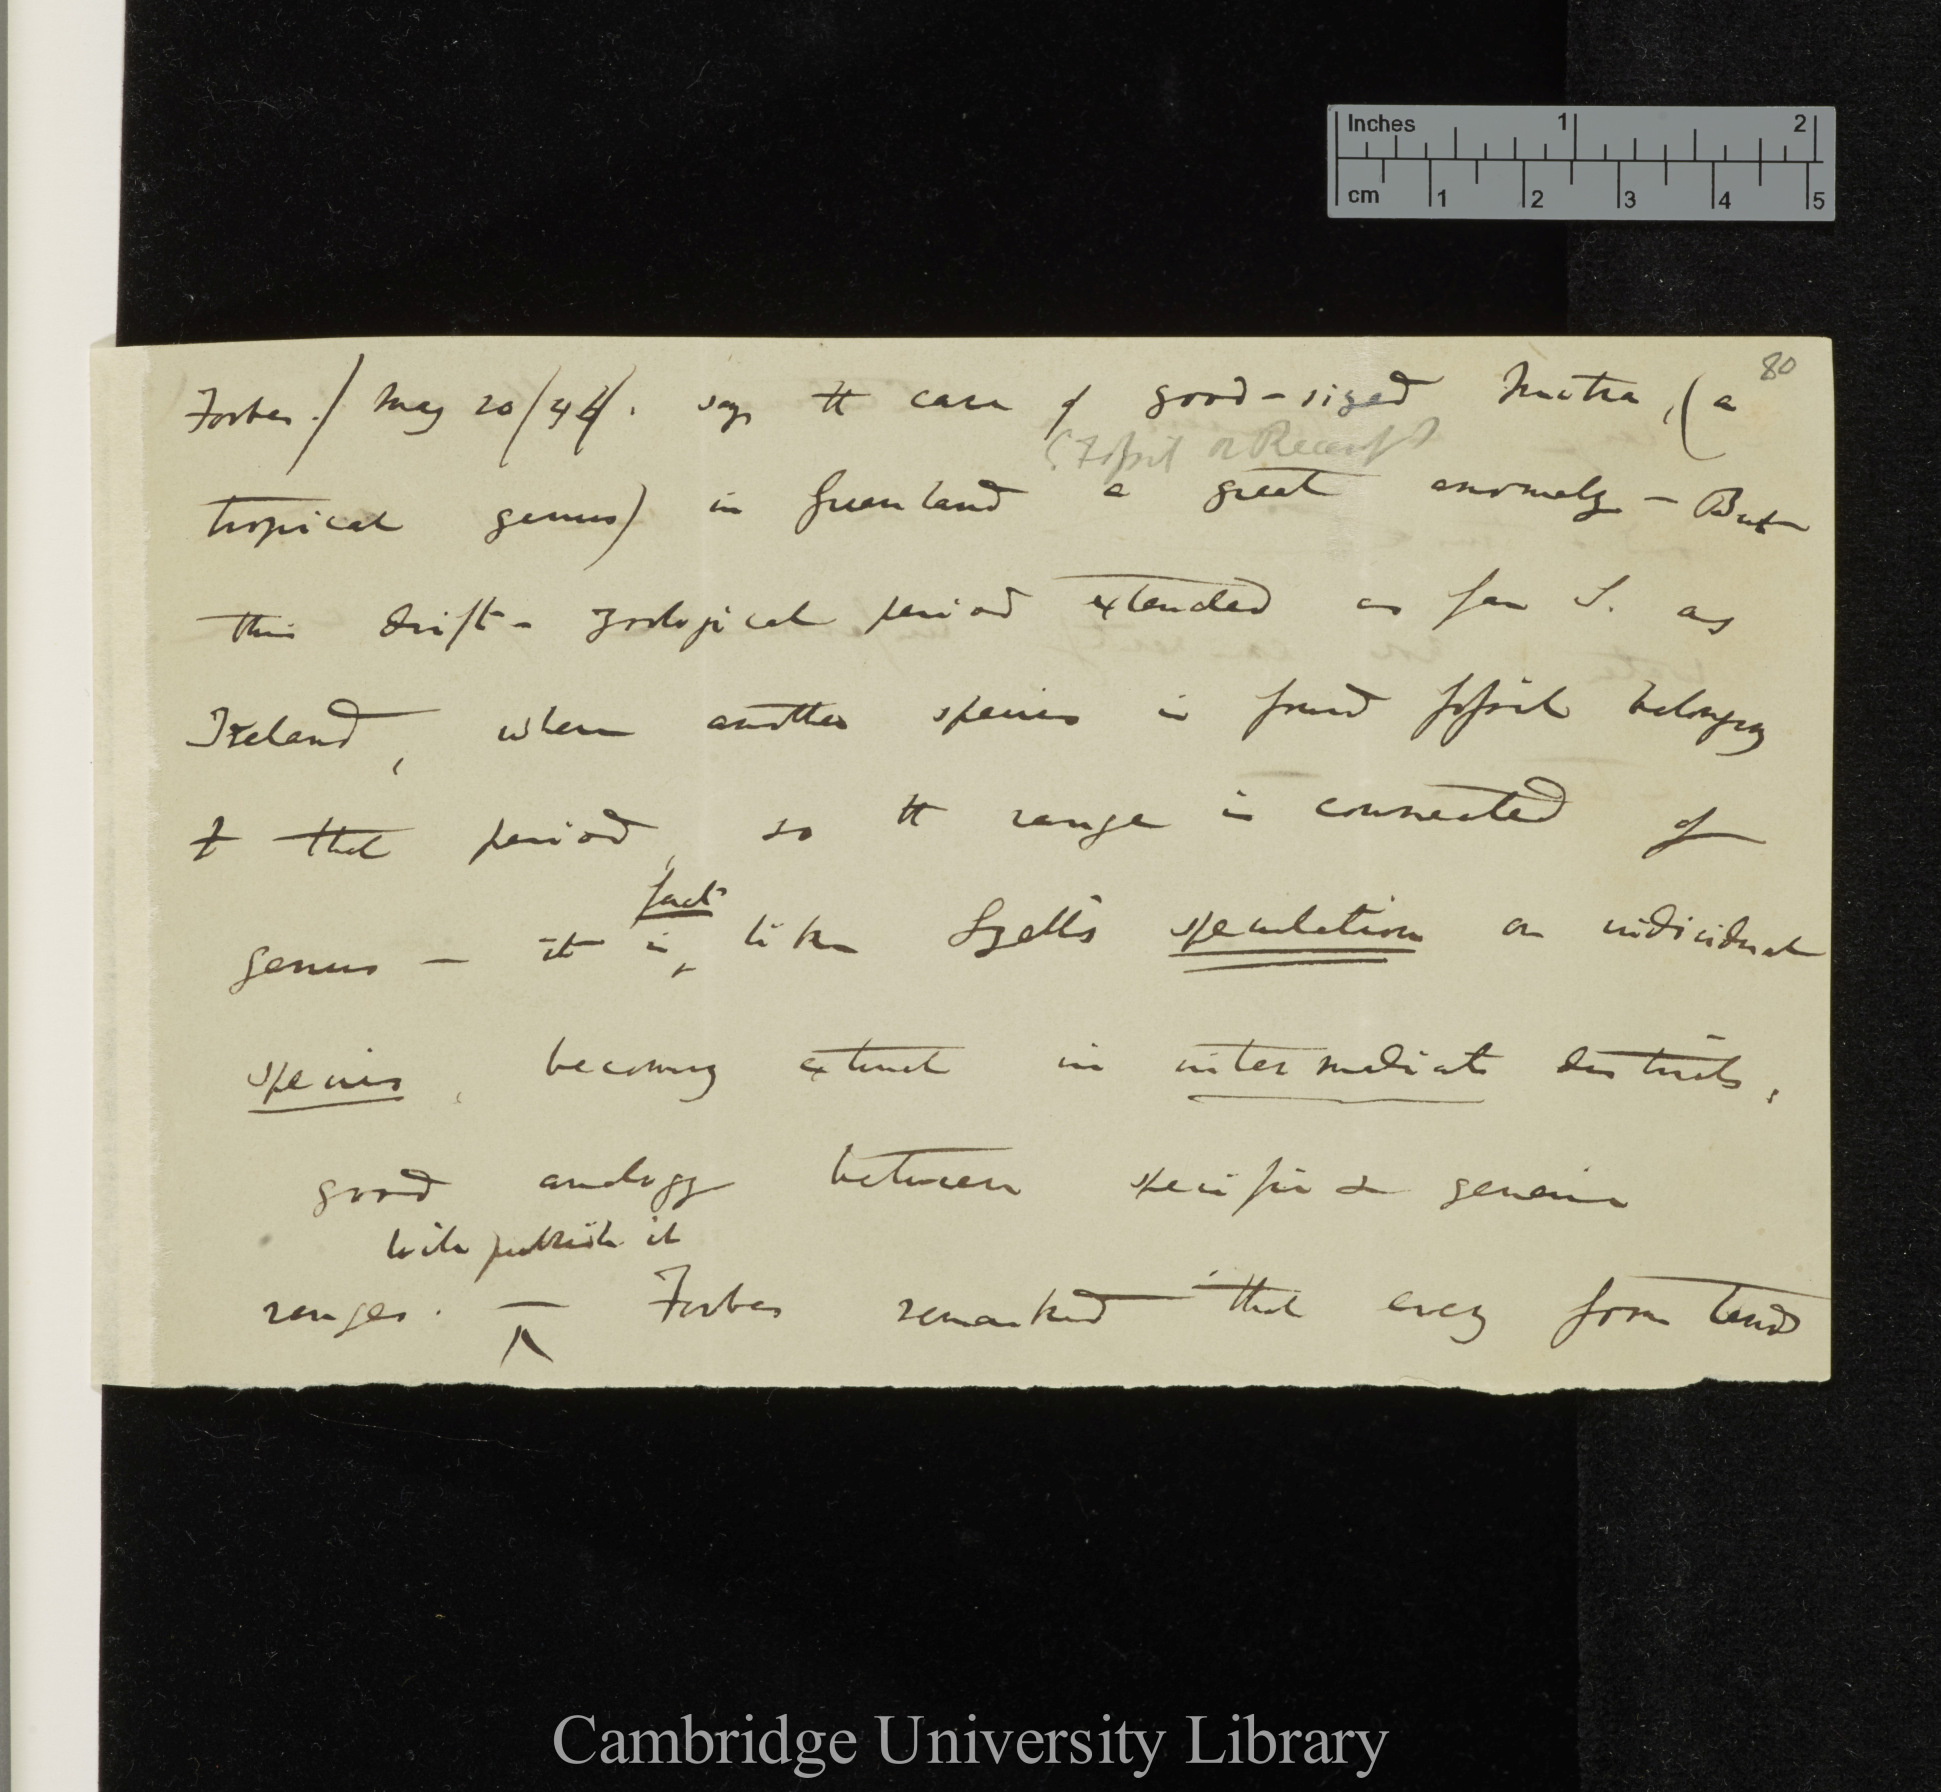 Inches 1 2
cm 1 2 3 4 5
80
Forbes./ May 20/46/. says tt case of good-sized Mitra, (a
(Fossil or Recent?)
tropical genus) in Greenland a great anomaly — But
this drift-zoological period extended as far S. as
Ireland, where another species is found fossil belonging
to that period, so tt range is connected of
fact
genus — it is, like Lyells speculation on individual
species, becoming extinct in intermediate districts,
good analogy between specific & generic
will publish it
ranges. — Forbes remarked that every form tends
Cambridge University Library